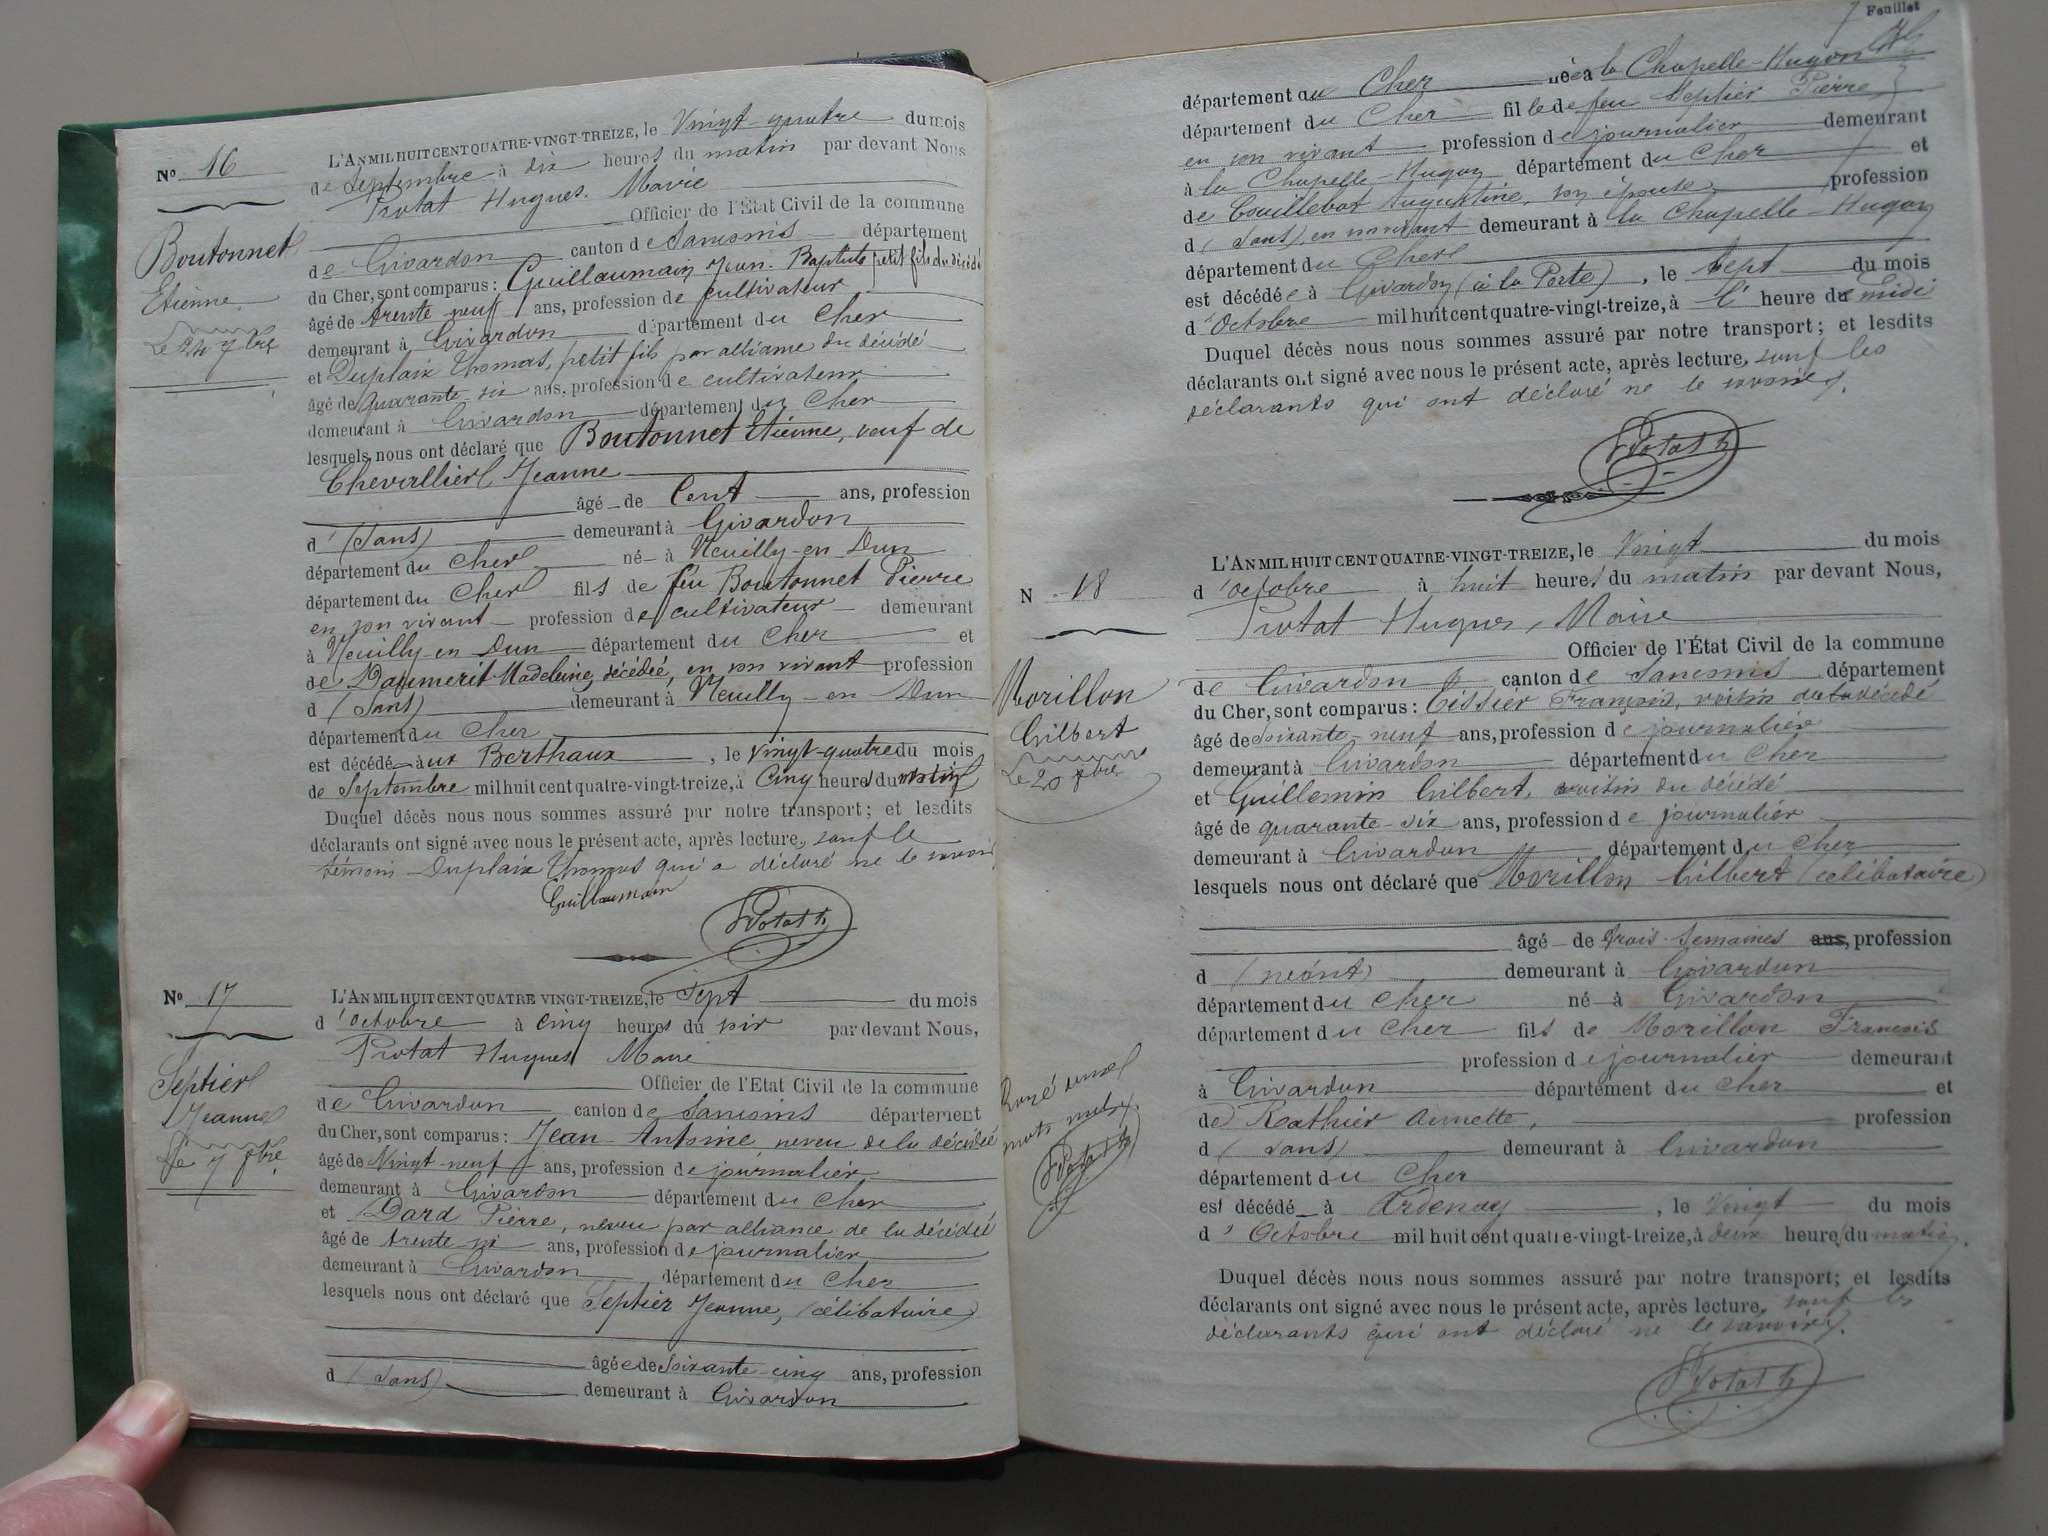 Nº 16
Boutonnet
Etienne
Le 24 7bre
L'AN MIL HUIT CENT QUATRE-VINGT-TREIZE, le Vingt-quatre du mois
de Septembre à dix heures du matin par devant Nous
Protat Hugues. Maire
Officier de l'État Civil de la commune
de Givardon canton de Sancoins département
du Cher, sont comparus : Guillaumain Jean-Baptiste petit fils du décédé
âgé de trente neuf ans, profession de cultivateur
demeurant à Givardon département du Cher
et Duplaix Thomas, petit fils par alliance du décédé
âgé de quarante-six ans, profession de cultivateur
demeurant à Givardon département du Cher
lesquels nous ont déclaré que Boutonnet Etienne, veuf de
Chevallier Jeanne
âgé de Cent ans, profession
d (Sans) demeurant à Givardon
département du Cher né à Neuilly-en Dun
département du Cher fils de feu Boutonnet Pierre
en son vivant profession de cultivateur demeurant
à Neuilly-en Dun département du Cher et
de Daumerit Madeleine, décédée, en son vivant profession
d (Sans) demeurant à Neuilly-en Dun
département du Cher
est décédé aux Berthaux, le vingt-quatre du mois
de Septembre mil huit cent quatre-vingt-treize, à Cinq heures du matin
Duquel décès nous nous sommes assuré par notre transport ; et lesdits
déclarants ont signé avec nous le présent acte, après lecture, sauf le
témoin Duplaix Thomas qui a déclaré ne le savoir
Guillaumain
Protat h
Nº 17
Septier
Jeanne
Le 7 8bre
L'AN MIL HUIT CENT QUATRE VINGT-TREIZE, le Sept du mois
d'Octobre à Cinq heures du soir par devant Nous,
Protat Hugues Maire
Officier de l'État Civil de la commune
de Givardon canton de Sancoins département
du Cher, sont comparus : Jean Antoine, neveu de la décédée
âgé de Vingt-neuf ans, profession de journalier
demeurant à Givardon département du Cher
et Dard Pierre, neveu par alliance de la décédée
âgé de trente-six ans, profession de journalier
demeurant à Givardon département du Cher
lesquels nous ont déclaré que Septier Jeanne, (célibataire)
âgée de Soixante-cinq ans, profession
d (Sans) demeurant à Givardon
7 Feuillet
département du Cher née à la Chapelle-Hugon
département du Cher fille de feu Septier Pierre
en son vivant profession de journalier demeurant
à la Chapelle-Hugon département du Cher et
de Couillebot Augustine, son épouse profession
d (Sans) en son vivant demeurant à la Chapelle-Hugon
département du Cher
est décédée à Givardon (à la Porte), le Sept du mois
d'Octobre mil huit cent quatre-vingt-treize, à l' heure de midi
Duquel décès nous nous sommes assuré par notre transport ; et lesdits
déclarants ont signé avec nous le présent acte, après lecture, sauf les
déclarants qui ont déclaré ne le savoir.
Protat h
N 18
Morillon
Gilbert
Le 20 8bre
L'AN MIL HUIT CENT QUATRE-VINGT-TREIZE, le Vingt du mois
d'Octobre à huit heures du matin par devant Nous,
Protat Hugues, Maire
Officier de l'État Civil de la commune
de Givardon canton de Sancoins département
du Cher, sont comparus : Tissier François, voisin du décédé
âgé de Soixante-neuf ans, profession de journalier
demeurant à Givardon département du Cher
et Guillemin Gilbert, voisin du décédé
âgé de quarante-six ans, profession de journalier
demeurant à Givardon département du Cher
lesquels nous ont déclaré que Morillon Gilbert (célibataire)
âgé de trois semaines ans, profession
d (néant) demeurant à Givardon
département du Cher né à Givardon
département du Cher fils de Morillon François
profession de journalier demeurant
à Givardon département du Cher et
de Rathier Annette, profession
d (Sans) demeurant à Givardon
département du Cher
est décédé à Ardenay, le Vingt du mois
d'Octobre mil huit cent quatre-vingt-treize, à deux heures du matin.
Duquel décès nous nous sommes assuré par notre transport ; et lesdits
déclarants ont signé avec nous le présent acte, après lecture, sauf les
déclarants qui ont déclaré ne le savoir.
Protat h
Rayé
mots nuls
Protat h